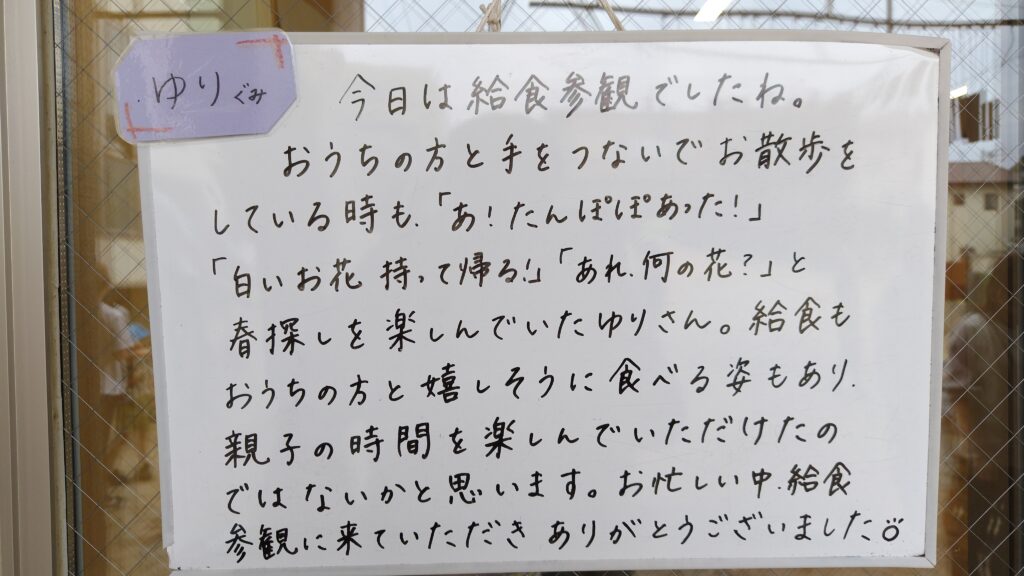 ゆりぐみ
今日は給食参観でしたね。
おうちの方と手をつないでお散歩を
している時も、「あ!たんぽぽあった!」
「白いお花 持って帰る!」「あれ、何の花?」と
春探しを楽しんでいたゆりさん。給食も
おうちの方と嬉しそうに食べる姿もあり、
親子の時間を楽しんでいただけたの
ではないかと思います。お忙しい中、給食
参観に来ていただき ありがとうございました